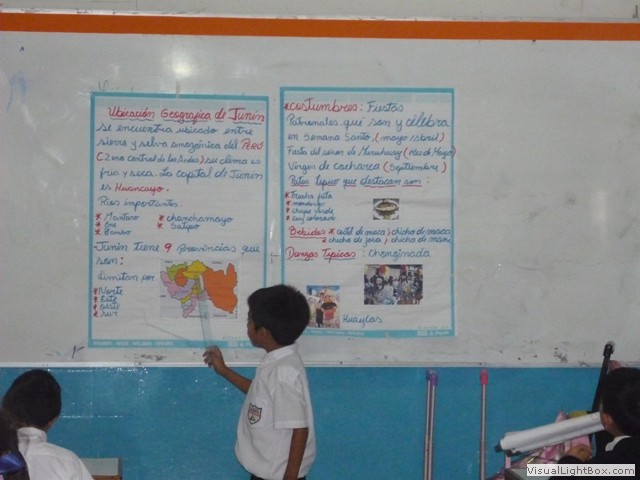 Ubicación Geografica de Junín
se encuentra ubicado entre
sierra y selva amazónica del Perú
(Zona central de los Andes) su clima es
fria y seca. La capital de Junín
es Huancayo.
Rios importantes.
* Mantaro * chanchamayo
* Ene * Satipo
- Junín tiene 9 Provincias que
son:
Limitan por
* Norte
* Este
* Oeste
* sur
* costumbres: Fiestas
Patronales que son y célebra
en semana Santa (mayo/abril)
Fiesta del señor de (mes de Mayo)
Virgen de cocharca (Septiembre)
Platos tipico que destacan son:
* Trucha frita
* mondongo
* chupe verde
* cuy colorado
Bebidas: * de maca, chicha de maca
* chicha de jora, chicha de mani
Danzas Típicas: Chonginada
Huaylas
www.VisualLightBox.com